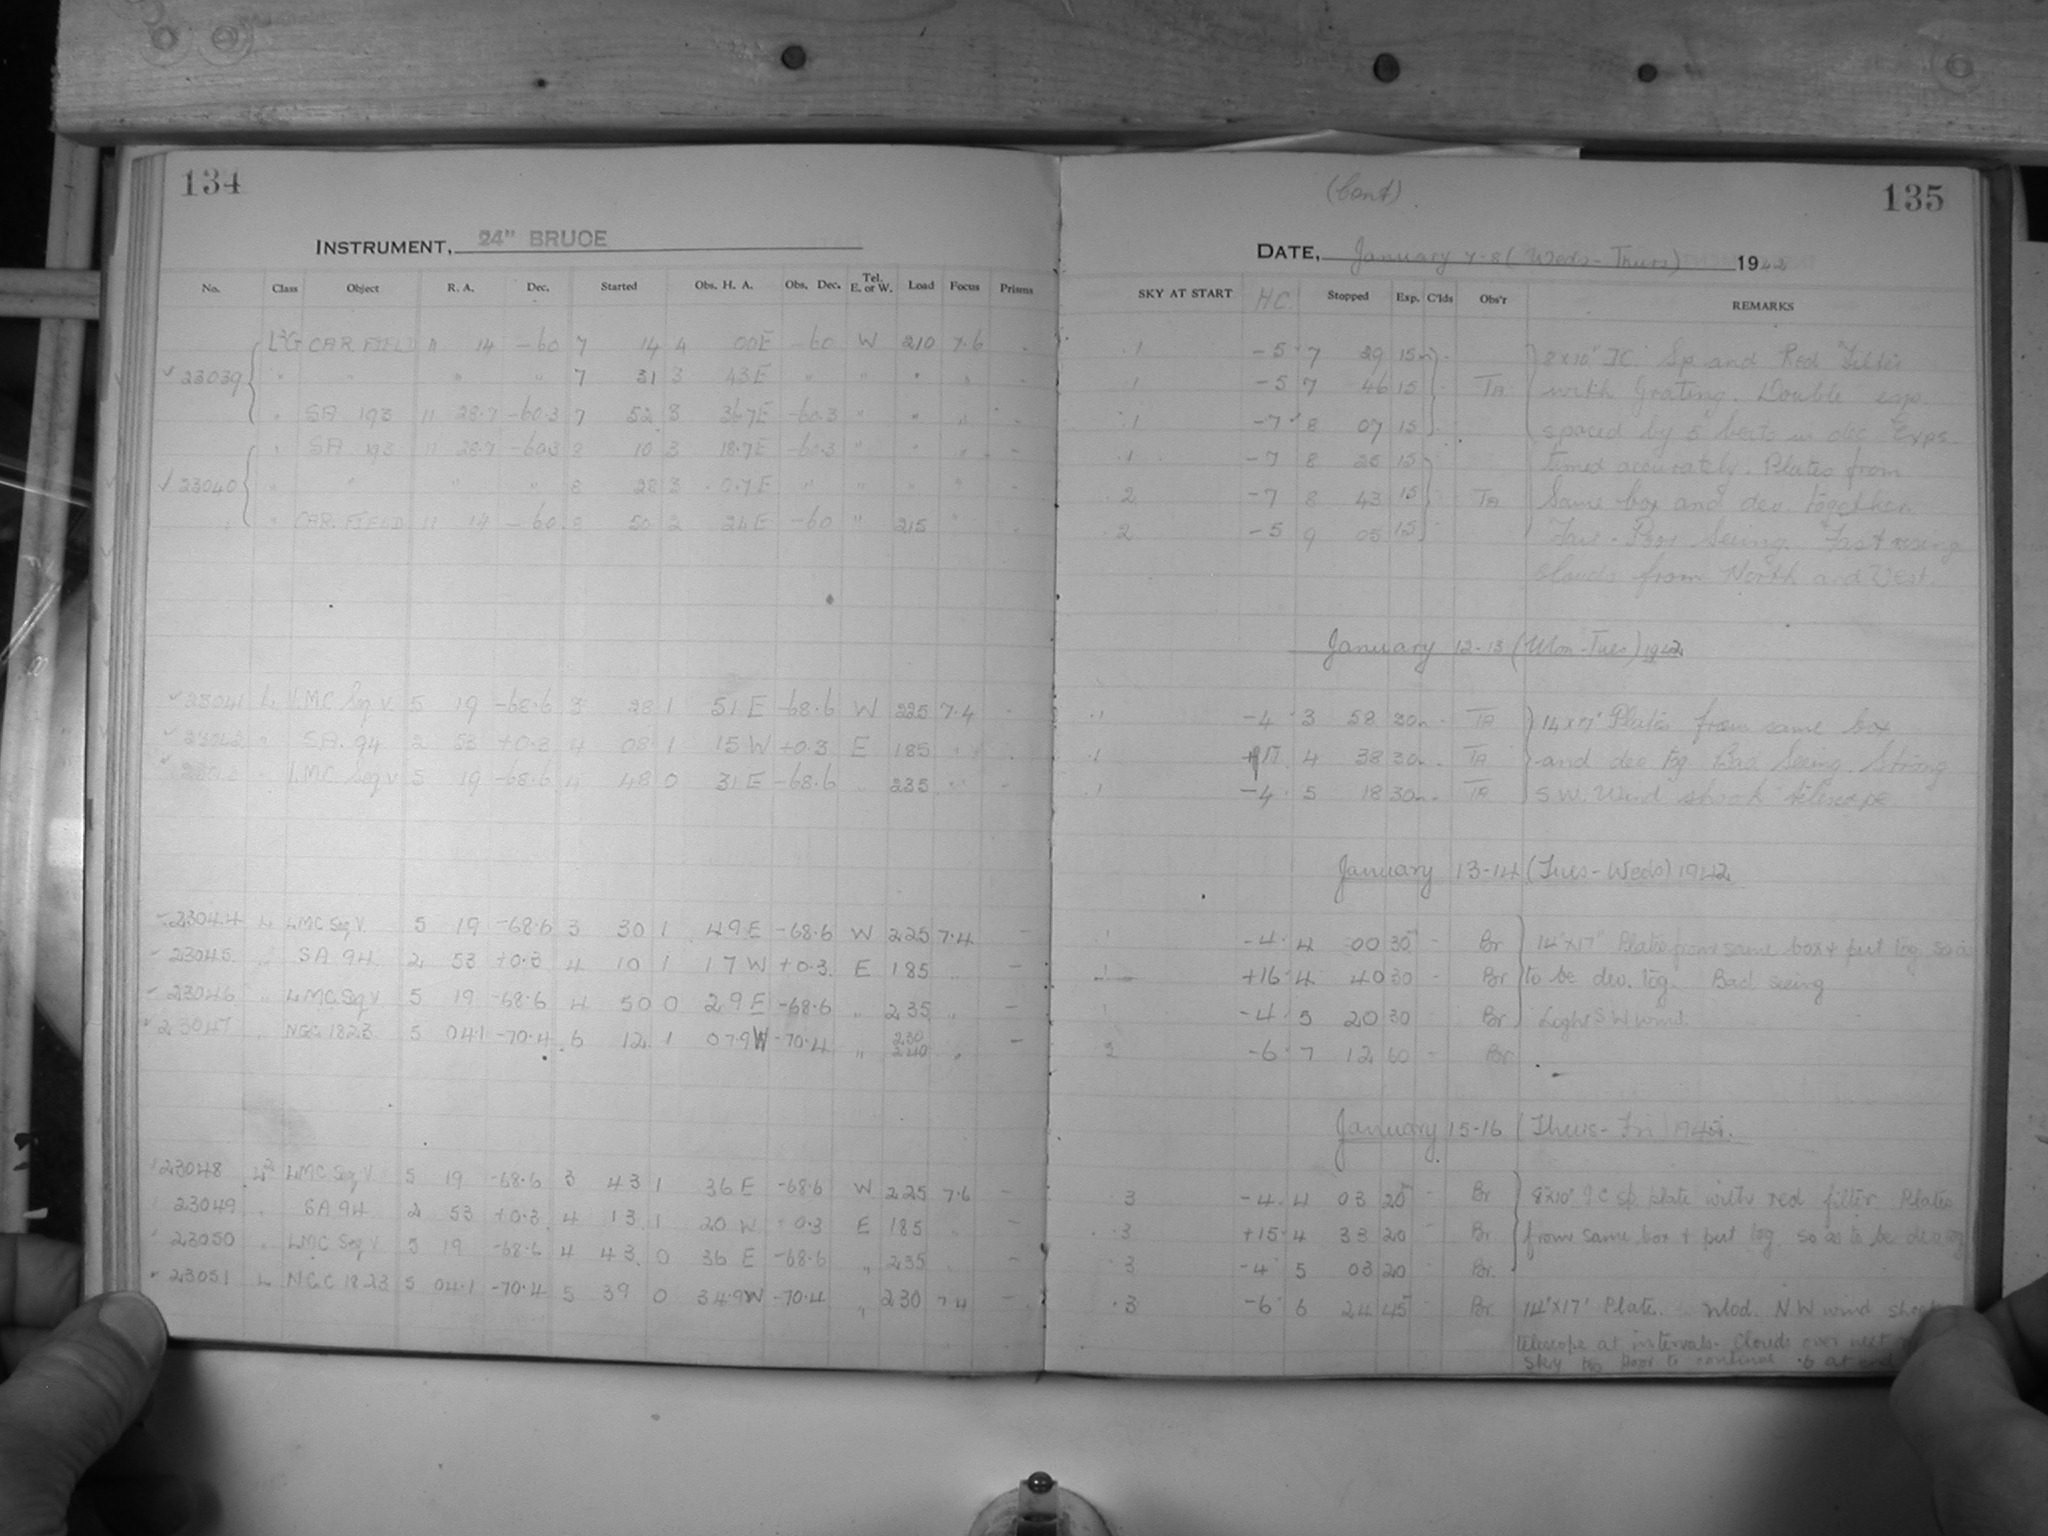 134
INSTRUMENT, 24" BRUCE
No. Class Object R. A. Dec. Started Obs. H. A. Obs. Dec. Tel. E. or W. Load Focus Prisms
CAR FIELD 11 14 -60 7 14 4 00E -60 W 210 7.6
23039 " " " " 7 31 3 43E " " " "
" SA 193 11 28.7 -60.3 7 52 3 36.7E -60.3 " " "
" SA 193 11 28.7 -60.3 8 10 3 18.7E -60.3 " " "
23040 " " " " 8 28 3 0.7E " " " "
" CAR. FIELD 11 14 -60 8 50 2 24E -60 " 215 "
23041 L LMC Seq V 5 19 -68.6 3 28 1 51 E -68.6 W 225 7.4
23042 " SA. 94 2 53 +0.3 4 08 1 15 W +0.3 E 185 "
LMC Seq V 5 19 -68.6 4 48 0 31 E -68.6 " 235 "
23044 L LMC Seq V. 5 19 -68.6 3 30 1 49 E -68.6 W 225 7.4 -
23045 " SA 94 2 53 +0.3 4 10 1 17 W +0.3 E 185 " -
23046 " LMC Seq V 5 19 -68.6 4 50 0 29 E -68.6 " 235 " -
23047 " NGC 1823 5 04.1 -70.4 6 12 1 07.9W -70.4 " 230 240 " -
23048 L² LMC Seq V 5 19 -68.6 3 43 1 36 E -68.6 W 225 7.6 -
23049 " SA 94 2 53 +0.3 4 13 1 20 W 0.3 E 185 "
23050 " LMC Seq V 5 19 -68.6 4 43 0 36 E -68.6 " 235
23051 L NGC 1823 5 04.1 -70.4 5 39 0 34.9W -70.4 " 230 7.4 -
(Cont) 135
DATE, January 7-8 (Weds-Thurs) 1942
SKY AT START HC Stopped Exp. C'lds Obs'r REMARKS
.1 -5 7 29 15m 8x10" IC Sp and Red Filter
.1 -5 7 46 15 TA with Grating. Double exps
.1 -7 8 07 15 spaced by 5 beats in dec Exps
.1 -7 8 25 15 timed accurately. Plates from
.2 -7 8 43 15 TA Same box and dev. together.
.2 -5 9 05 15 Fair-Poor Seeing. Fast rising
clouds from North and West.
January 12-13 (Mon-Tues) 1942
.1 -4 3 58 30m TA 14x17" Plates from same box
.1 4 38 30m TA and dev tog. Bad Seeing. Strong
.1 -4 5 18 30m TA S.W. Wind shook telescope.
January 13-14 (Tues-Weds) 1942
.1 -4 4 00 30 - Br 14"x17" Plates from same box + put tog. so as
.1 +16 4 40 30 Br to be dev. tog. Bad seeing
-4 5 20 30 Br Light S W wind.
-6 7 12 60 - Br
January 15-16 (Thurs-Fri)
.3 -4 4 03 20 - Br 8"x10" I C sp. plate with red filter Plates
.3 +15 4 33 20 Br from same box + put tog. so as to be dev tog
.3 -4 5 03 20 - Br.
.3 -6 6 24 45 - Br 14"x17" Plate. Mod. N W wind
telescope at intervals. Clouds over
Sky too poor to continue .6 at end